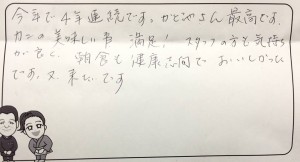 今年で4年連続です。かどやさん最高です。
カニの美味しい事 満足! スタッフの方も気持ち
が良く 朝食も健康志向で おいしかった
です。又来たいです